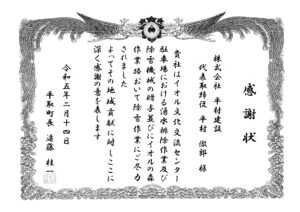 感謝状
株式会社 平村建設
代表取締役 平村 徹郎 様
貴社はイオル文化交流センター
駐車場における湧水排除作業及び
除雪機械の贈与並びにイオルの森
作業路おいて除雪作業にご尽力
されました
よってその地域貢献に対しここに
深く感謝の意を表します
令和五年二月十四日
平取町長 遠藤 桂一